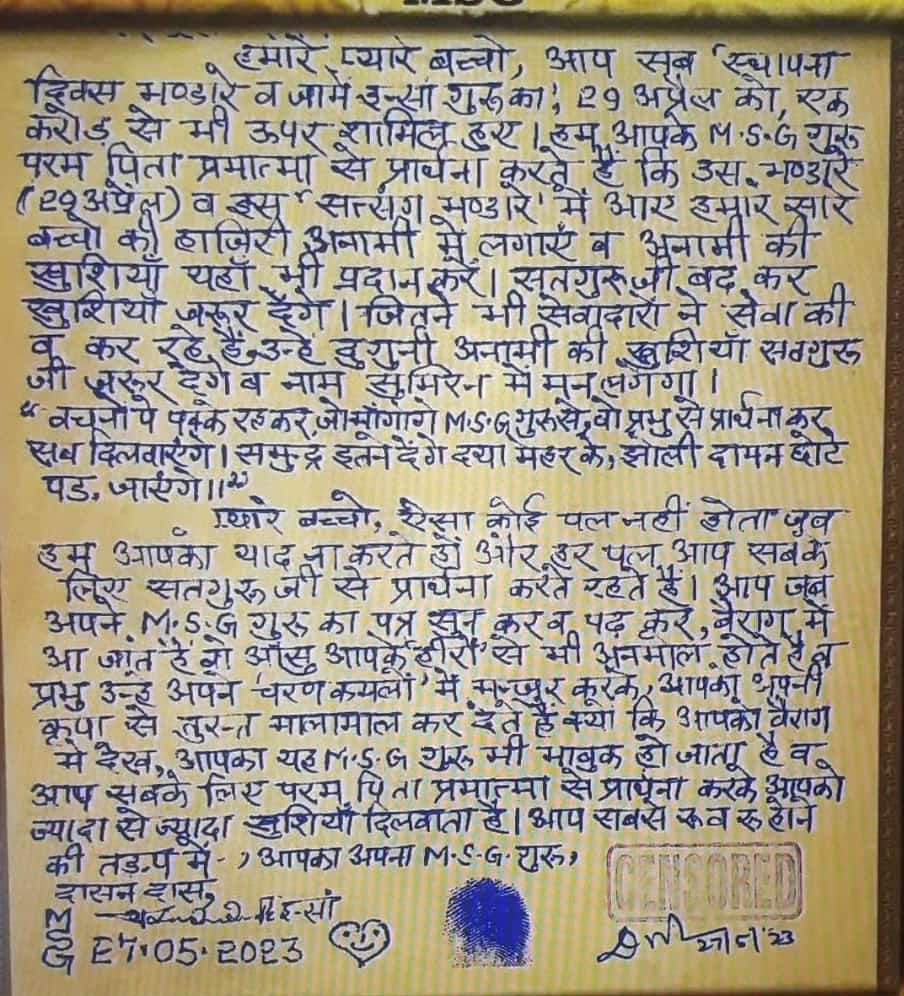 हमारे प्यारे बच्चो, आप सब 'स्थापना
दिवस भण्डारे व जामे इन्सां गुरु का', 29 अप्रैल को, एक
करोड़ से भी ऊपर शामिल हुए। हम आपके M.S.G गुरू
परम पिता प्रमात्मा से प्रार्थना करते हैं कि उस भण्डारे
(29 अप्रैल) व इस 'सत्संग भण्डारे' में आए हमारे सारे
बच्चो की हाजिरी अनामी में लगाएं व अनामी की
खुशियाँ यहाँ भी प्रदान करें। सतगुरू जी बढ़ कर
खुशियाँ जरूर देंगे। जितने भी सेवादारों ने सेवा की
व कर रहे हैं, उन्हें दुगुनी अनामी की खुशियाँ सतगुरू
जी जरूर देंगे व नाम सुमिरन में मन लगेगा।
"वचनों पे पक्के रहकर, जो मांगोगे M.S.G गुरु से, वो प्रभु से प्रार्थना कर
सब दिलवाएंगे। समुद्र इतने देंगे दया मेहर के, झोली दामन छोटे
पड़ जाएंगे।।"
प्यारे बच्चो, ऐसा कोई पल नहीं होता जब
हम आपको याद ना करते हों और हर पल आप सबके
लिए सतगुरू जी से प्रार्थना करते रहते हैं। आप जब
अपने M.S.G गुरू का पत्र सुन कर व पढ़ कर, वैराग में
आ जाते हैं वो आँसु आपके 'हीरों' से भी अनमोल होते हैं व
प्रभु उन्हें अपने 'चरण कमलों' में मन्जूर करके, आपको अपनी
कृपा से तुरन्त मालामाल कर देते हैं क्यों कि आपको वैराग
में देख, आपका यह M.S.G गुरू भी भावुक हो जाता है व
आप सबके लिए परम पिता प्रमात्मा से प्रार्थना करके आपको
ज्यादा से ज्यादा खुशियाँ दिलवाता है। आप सबसे रूबरू होने
की तड़प में-, आपका अपना M.S.G. गुरू,
दासन दास,
CENSORED
MSG
इन्सां
27.05.2023
27/5/23